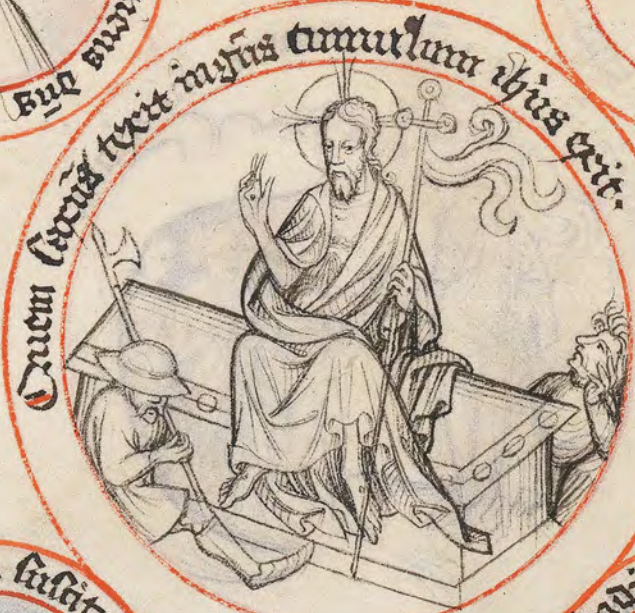 Quem saxū texit ingēs tumulum ihus exit.
suscit